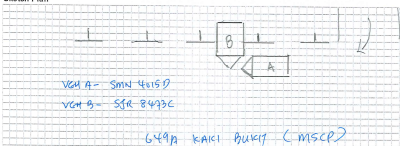 Sketch Plan
B
A
VEH A- SMN 4015D
VEH B- SJR 8473C
649A KAKI BUKIT (MSCP)